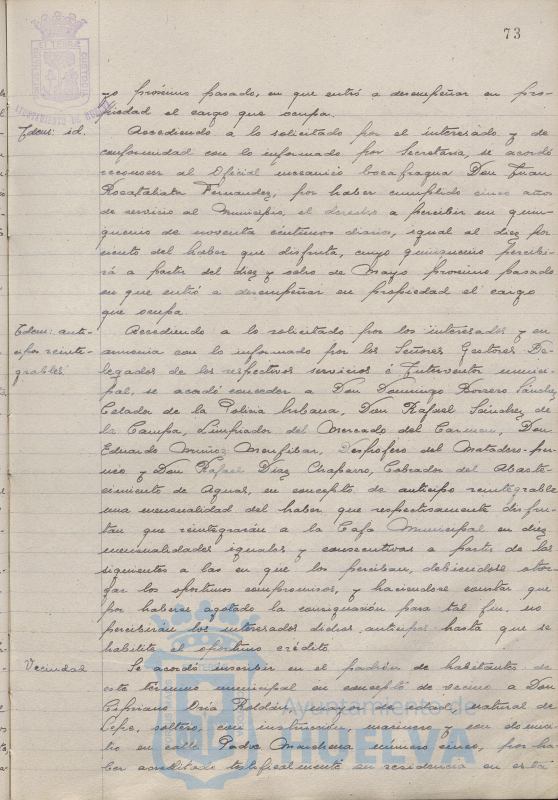 73
AYUNTAMIENTO DE HUELVA
yo próximo pasado, en que entró a desempeñar en pro-
piedad el cargo que ocupa.
Idem: id. Accediendo a lo solicitado por el interesado y de
conformidad con lo informado por Secretaría, se acordó
reconocer al Oficial mecánico bocafragua Don Juan
Rocatabata Fernandez, por haber cumplido cinco años
de servicio al Municipio, el derecho a percibir un quin-
quenio de noventa céntimos diarios, igual al diez por
ciento del haber que disfruta, cuyo quinquenio percibi-
rá a partir del diez y ocho de Mayo proximo pasado
en que entró a desempeñar en propiedad el cargo
que ocupa.
Idem: anti- Accediendo a lo solicitado por los interesados y en
cipos reinte- armonía con lo informado por los Señores Gestores De-
grables legados de los respectivos servicios é Interventor munici-
pal, se acordó conceder a Don Domingo Borrero Sánchez
Celador de la Policía Urbana, Don Rafael Sánchez de
la Campa, Limpiador del Mercado del Carmen, Don
Eduardo Muñoz Mengibar, Desfosfero del Matadero-
y Don Rafael Diaz Chaparro, Cobrador del Abaste-
cimiento de Aguas, en concepto de anticipo reintegrable
una mensualidad del haber que respectivamente disfru-
tan que reintegrarán a la Caja Municipal en diez
mensualidades iguales y consecutivas a partir de las
siguientes a las en que los perciban, debiendose otor-
gar los oportunos compromisos, y haciendose constar que
por haberse agotado la consignación para tal fin, no
percibirán los interesados dichos anticipos hasta que se
habilite el oportuno crédito.
Vecindad Se acordó inscribir en el padrón de habitantes de
este término municipal en concepto de vecino a Don
Cipriano Oria Roldán, mayor de edad, natural de
Lepe, soltero, con instrucción, marinero y con domici-
lio en calle Padre Marchena número cinco, por ha-
ber acreditado testificalmente su residencia en esta
Ayuntamiento de
HUELVA